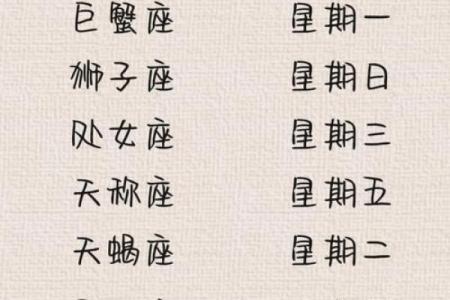 巨蟹座 星期一
狮子座 星期日
处女座 星期三
天称座 星期五
天蝎座 星期二